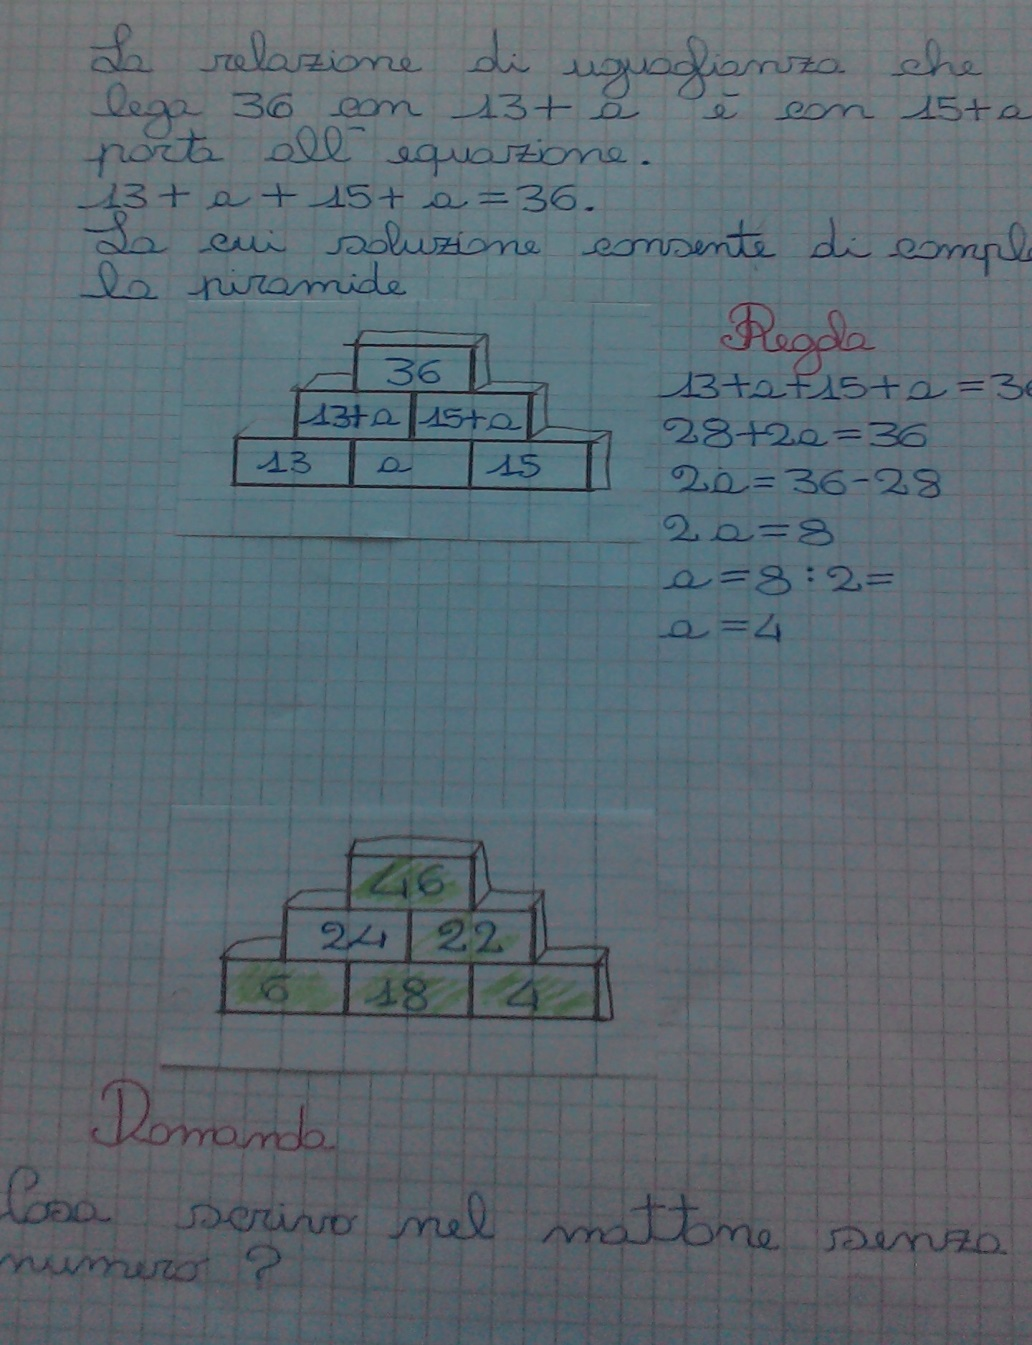 La relazione di uguaglianza che
lega 36 con 13+a e con 15+a
porta all'equazione.
13+a+15+a=36.
La cui soluzione consente di compl
la piramide
Regola
36
13+a 15+a
13 a 15
13+a+15+a=36
28+2a=36
2a=36-28
2a=8
a=8:2=
a=4
46
24 22
6 18 4
Domanda
Cosa scrivo nel mattone senza
numero?